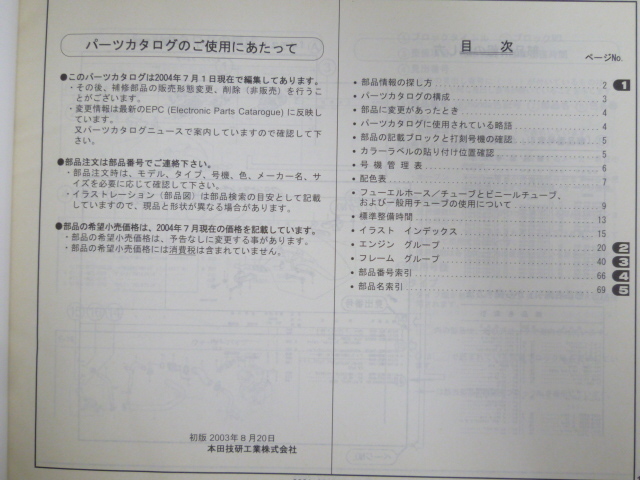 パーツカタログのご使用にあたって
●このパーツカタログは2004年7月1日現在で編集してあります。
・その後、補修部品の販売形態変更、削除（非販売）を行うこ
とがございます。
・変更情報は最新のEPC (Electronic Parts Catarogue) に反映し
ています。
又パーツカタログニュースで案内していますので確認して下
さい。
●部品注文は部品番号でご連絡下さい。
・部品注文時は、モデル、タイプ、号機、色、メーカー名、サ
イズを必要に応じて確認して下さい。
・イラストレーション（部品図）は部品検索の目安として記載
していますので、現品と形状が異なる場合があります。
●部品の希望小売価格は、2004年7月現在の価格を記載しています。
・部品の希望小売価格は、予告なしに変更する事があります。
・部品の希望小売価格には消費税は含まれていません。
初版 2003年8月20日
本田技研工業株式会社
目 次
ページNo.
• 部品情報の探し方 2 1
• パーツカタログの構成 3
• 部品に変更があったとき 4
• パーツカタログに使用されている略語 4
• 部品の記載ブロックと打刻号機の確認 5
• カラーラベルの貼り付け位置確認 5
• 号 機 管 理 表 6
• 配色表 7
• フューエルホース／チューブとビニールチューブ、
および一般用チューブの使用について 9
• 標準整備時間 13
• イラスト インデックス 15
• エンジン グループ 20 2
• フレーム グループ 40 3
• 部品番号索引 66 4
• 部品名索引 69 5